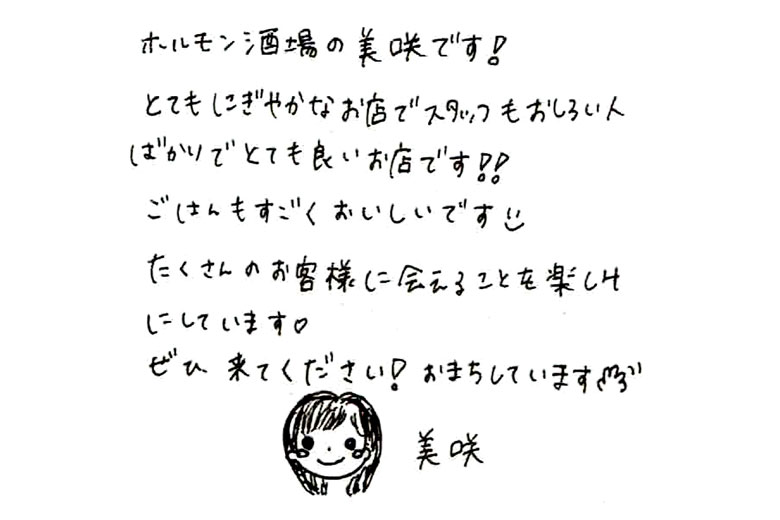 ホルモン酒場の美咲です!
とてもにぎやかなお店でスタッフもおしろい人
ばかりでとても良いお店です!!
ごはんもすごくおいしいです
たくさんのお客様に会えることを楽しみ
にしています♡
ぜひ来てください!おまちしています
美咲